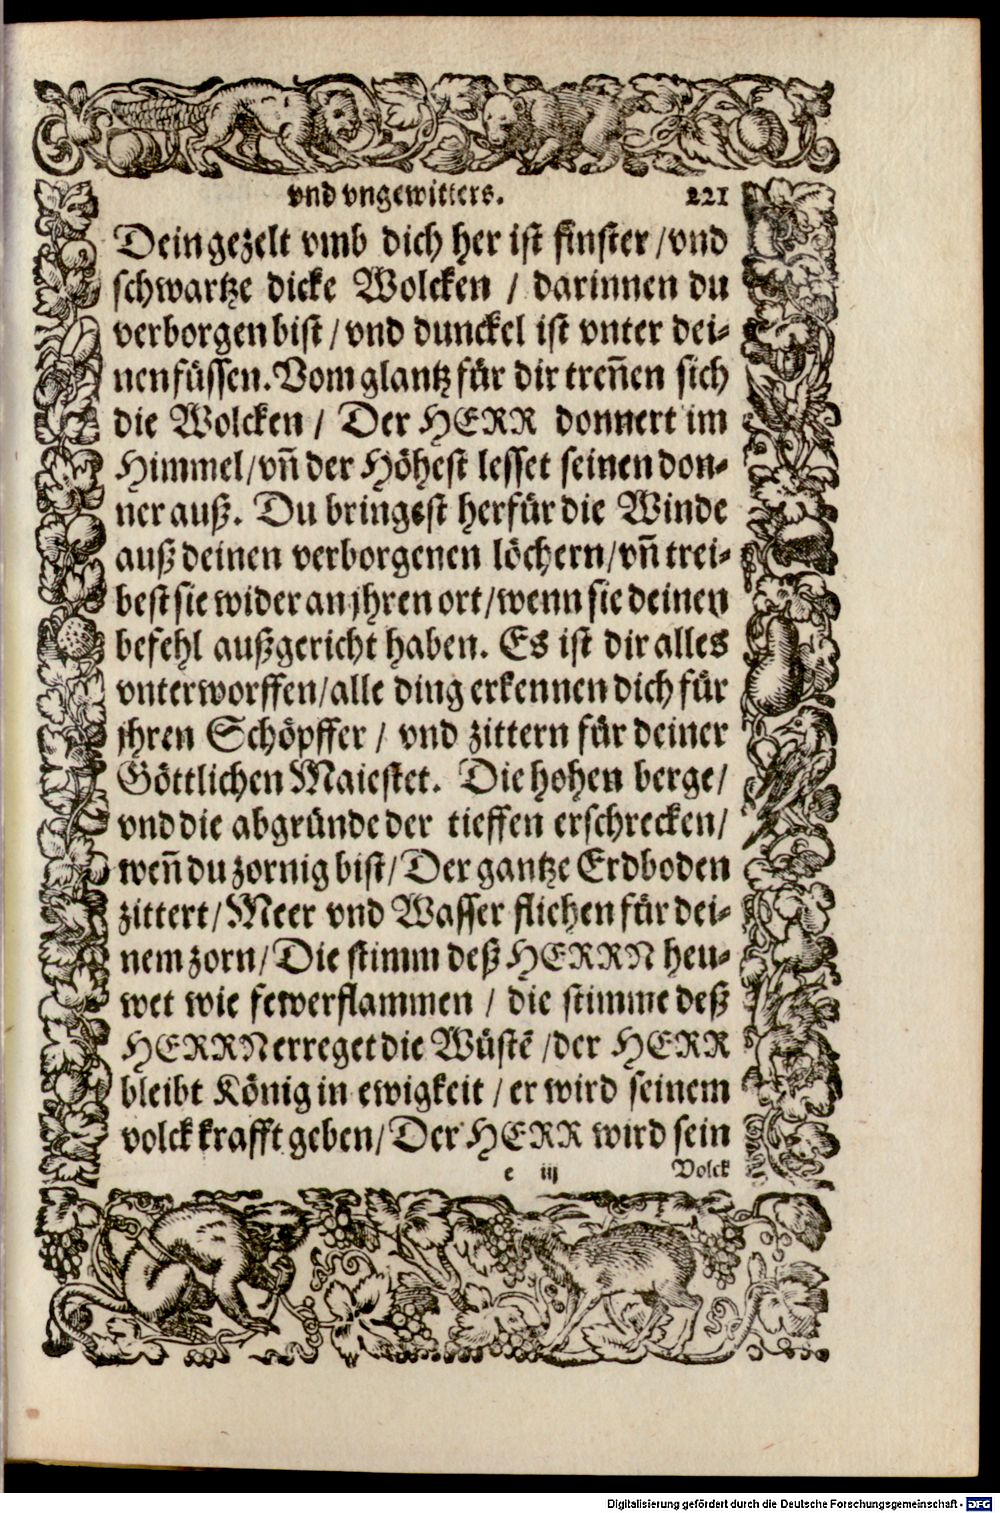 vnd vngewitters. 221
Dein gezelt vmb dich her ist finster / vnd
schwartze dicke Wolcken / darinnen du
verborgen bist / vnd dunckel ist vnter dei-
nen füssen. Vom glantz für dir treñen sich
die Wolcken / Der HERR donnert im
Himmel / vñ der Höhest lesset seinen don-
ner auß. Du bringest herfür die Winde
auß deinen verborgenen löchern / vñ trei-
best sie wider an jhren ort / wenn sie deinen
befehl außgericht haben. Es ist dir alles
vnterworffen / alle ding erkennen dich für
jhren Schöpffer / vnd zittern für deiner
Göttlichen Maiestet. Die hohen berge /
vnd die abgründe der tieffen erschrecken /
weñ du zornig bist / Der gantze Erdboden
zittert / Meer vnd Wasser fliehen für dei-
nem zorn / Die stimm deß HERRN heu-
wet wie fewerflammen / die stimme deß
HERRN erreget die Wüstẽ / der HERR
bleibt König in ewigkeit / er wird seinem
volck krafft geben / Der HERR wird sein
e iij Volck
Digitalisierung gefördert durch die Deutsche Forschungsgemeinschaft - DFG